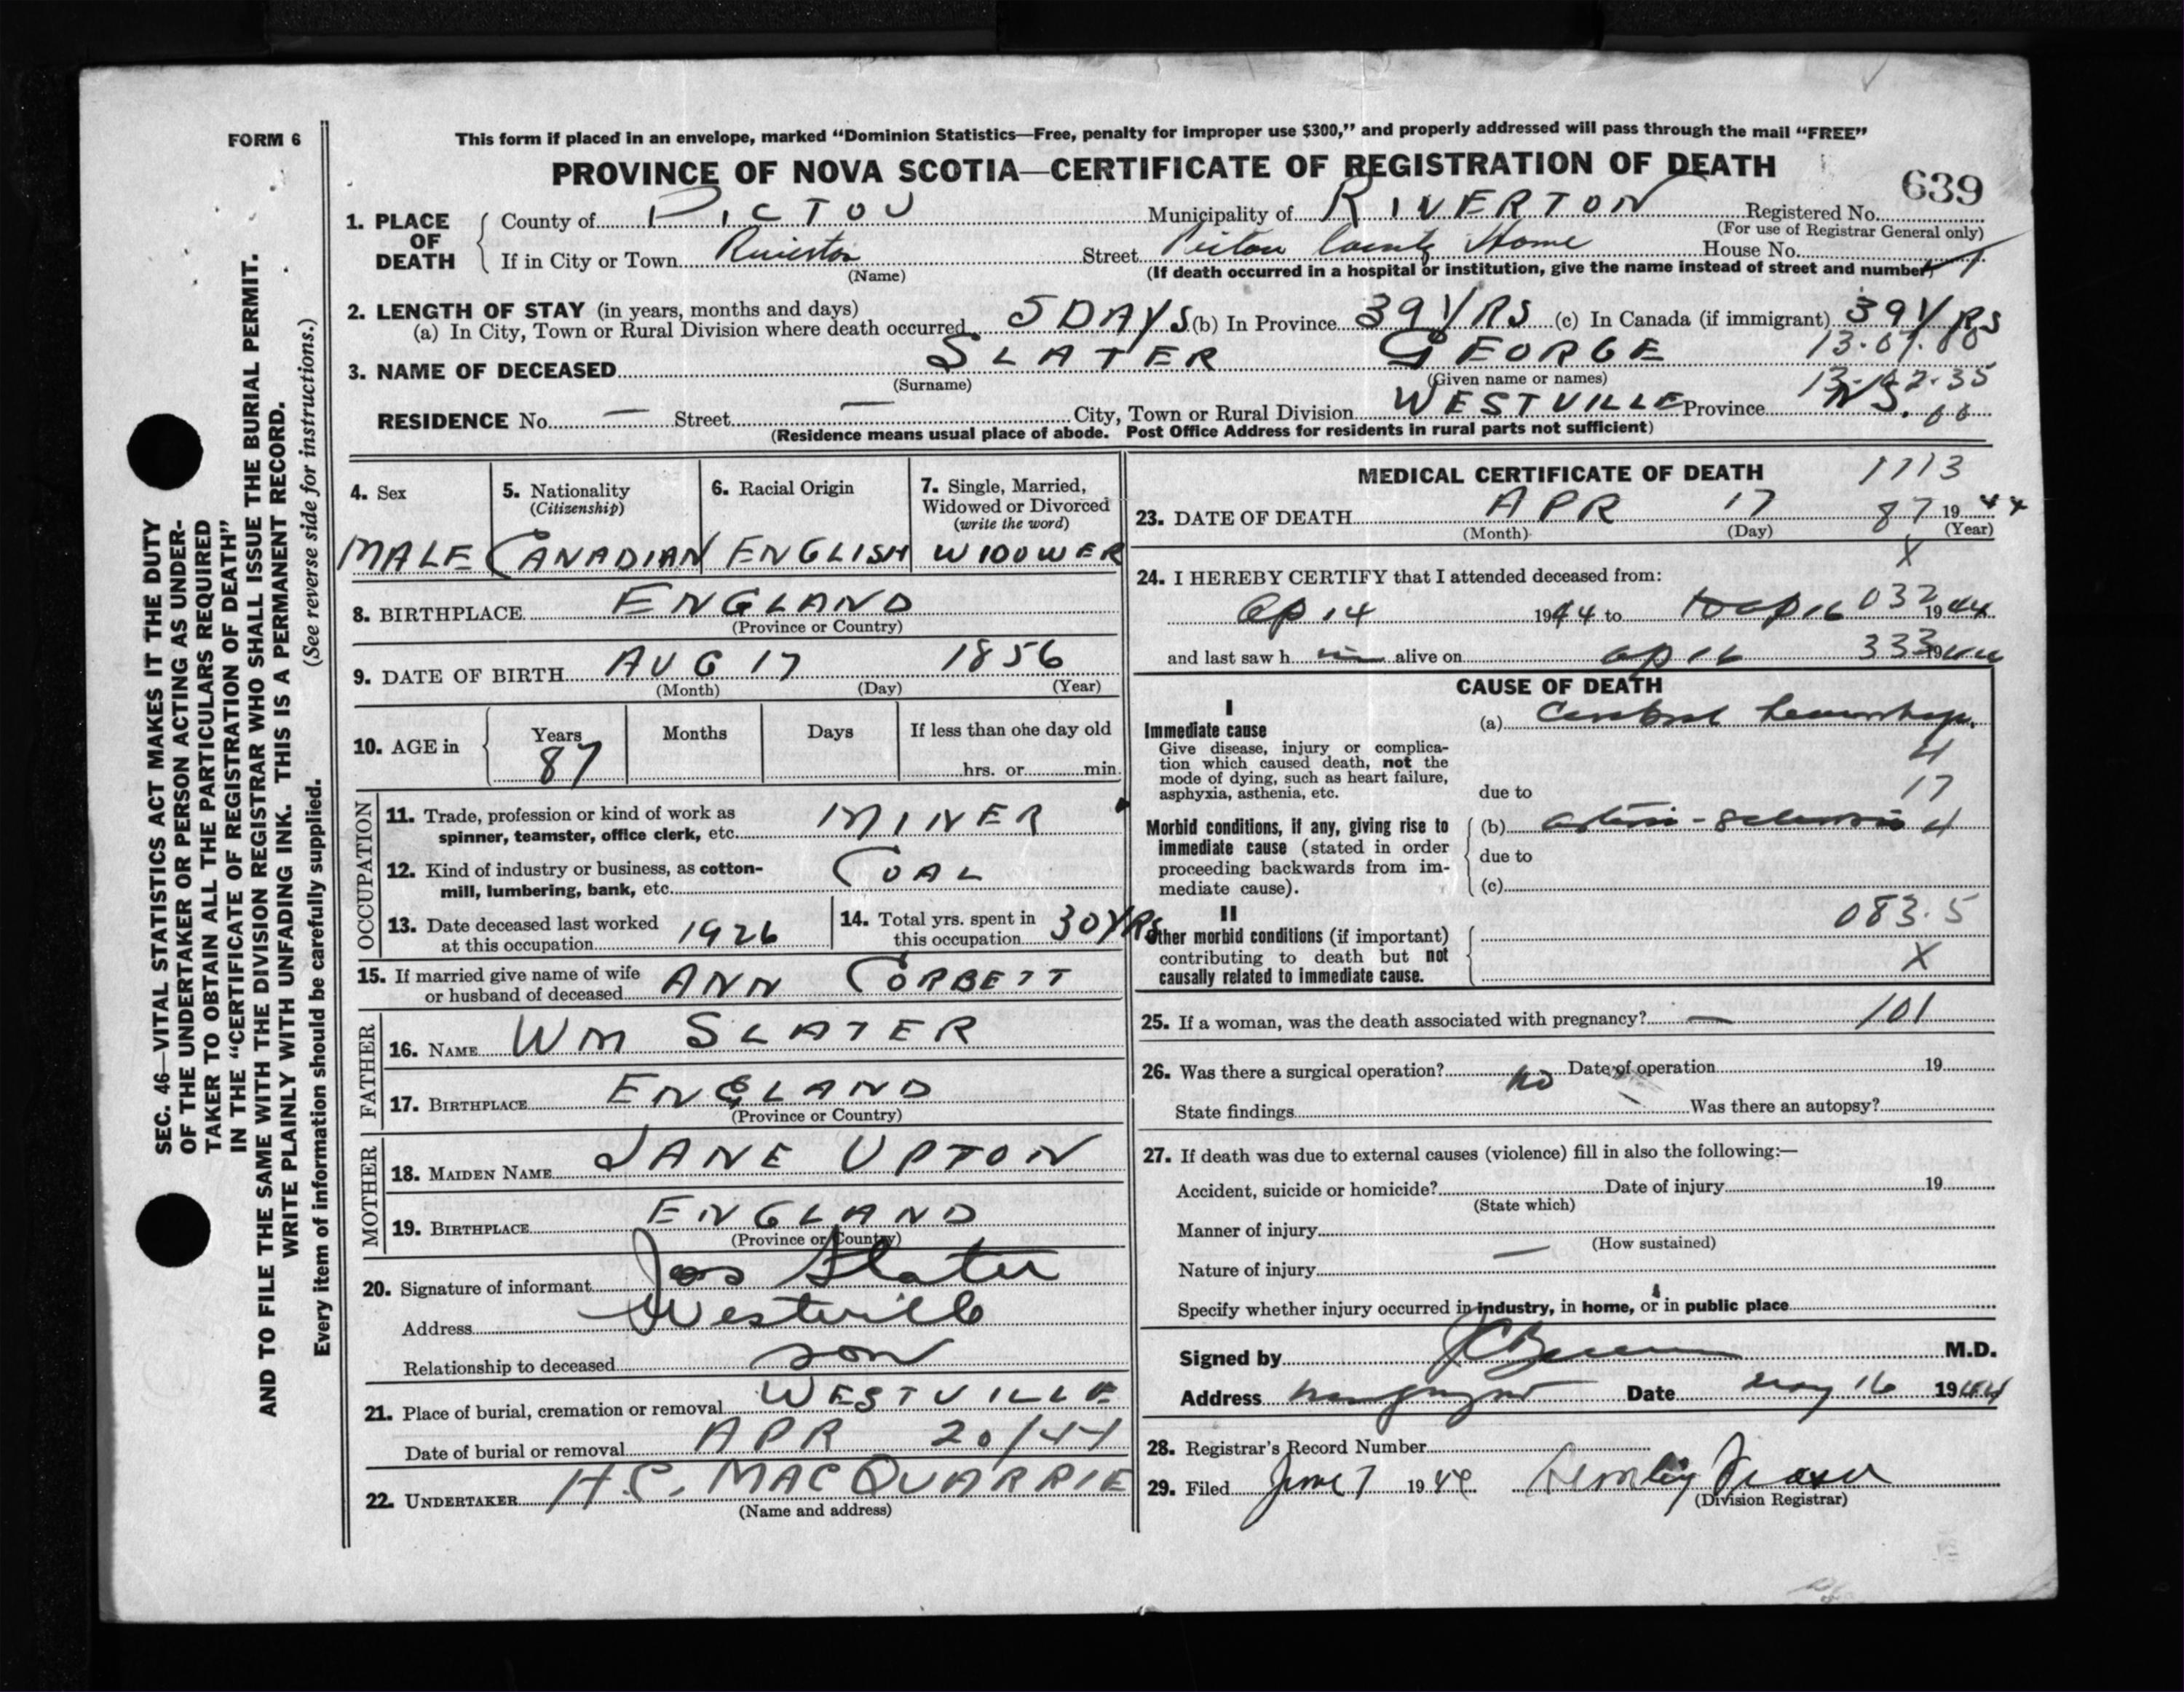 FORM 6
This form if placed in an envelope, marked “Dominion Statistics—Free, penalty for improper use $300,” and properly addressed will pass through the mail “FREE”
PROVINCE OF NOVA SCOTIA—CERTIFICATE OF REGISTRATION OF DEATH
639
1. PLACE OF DEATH
County of PICTOU Municipality of RIVERTON Registered No.
(For use of Registrar General only)
If in City or Town Riverton Street Pictou County Home House No.
(Name)
(If death occurred in a hospital or institution, give the name instead of street and number)
2. LENGTH OF STAY (in years, months and days)
(a) In City, Town or Rural Division where death occurred 5 DAYS (b) In Province 39 YRS (c) In Canada (if immigrant) 39 YRS
3. NAME OF DECEASED SLATER GEORGE
(Surname) (Given name or names)
RESIDENCE No. — Street — City, Town or Rural Division WESTVILLE Province N.S.
(Residence means usual place of abode. Post Office Address for residents in rural parts not sufficient)
4. Sex
MALE
5. Nationality
(Citizenship)
CANADIAN
6. Racial Origin
ENGLISH
7. Single, Married,
Widowed or Divorced
(write the word)
WIDOWER
8. BIRTHPLACE ENGLAND
(Province or Country)
9. DATE OF BIRTH AUG 17 1856
(Month) (Day) (Year)
10. AGE in Years Months Days If less than one day old
87 hrs. or min.
OCCUPATION
11. Trade, profession or kind of work as
spinner, teamster, office clerk, etc. MINER
12. Kind of industry or business, as cotton-
mill, lumbering, bank, etc. COAL
13. Date deceased last worked
at this occupation 1926
14. Total yrs. spent in
this occupation 30 YRS
15. If married give name of wife
or husband of deceased ANN CORBETT
FATHER
16. NAME WM SLATER
17. BIRTHPLACE ENGLAND
(Province or Country)
MOTHER
18. MAIDEN NAME JANE UPTON
19. BIRTHPLACE ENGLAND
(Province or Country)
20. Signature of informant Jas Slater
Address Westville
Relationship to deceased son
21. Place of burial, cremation or removal WESTVILLE
Date of burial or removal APR 20/44
22. UNDERTAKER H.C. MACQUARRIE
(Name and address)
MEDICAL CERTIFICATE OF DEATH 1713
23. DATE OF DEATH APR 17 87 19 44
(Month) (Day) (Year)
X
24. I HEREBY CERTIFY that I attended deceased from:
Ap 14 1944 to Ap 16 032 19 44
and last saw h im alive on ap 16 333 19 44
CAUSE OF DEATH
I
Immediate cause
Give disease, injury or complica-
tion which caused death, not the
mode of dying, such as heart failure,
asphyxia, asthenia, etc.
(a) Cerebral hemorrhage
4
due to 17
Morbid conditions, if any, giving rise to
immediate cause (stated in order
proceeding backwards from im-
mediate cause).
(b) arterio-sclerosis 4
due to
(c)
II
Other morbid conditions (if important)
contributing to death but not
causally related to immediate cause.
083.5
X
25. If a woman, was the death associated with pregnancy? — 101
26. Was there a surgical operation? no Date of operation 19
State findings Was there an autopsy?
27. If death was due to external causes (violence) fill in also the following:—
Accident, suicide or homicide? Date of injury 19
(State which)
Manner of injury
(How sustained)
Nature of injury —
Specify whether injury occurred in industry, in home, or in public place
Signed by M.D.
Address Date May 16 1944
28. Registrar's Record Number
29. Filed June 7 19 44 Fraser
(Division Registrar)
SEC. 46—VITAL STATISTICS ACT MAKES IT THE DUTY
OF THE UNDERTAKER OR PERSON ACTING AS UNDER-
TAKER TO OBTAIN ALL THE PARTICULARS REQUIRED
IN THE “CERTIFICATE OF REGISTRATION OF DEATH”
AND TO FILE THE SAME WITH THE DIVISION REGISTRAR WHO SHALL ISSUE THE BURIAL PERMIT.
WRITE PLAINLY WITH UNFADING INK. THIS IS A PERMANENT RECORD.
Every item of information should be carefully supplied. (See reverse side for instructions.)